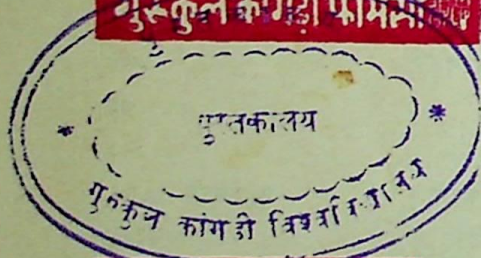 गुरुकुल कांगड़ी फार्मेसी
पुस्तकालय
गुरुकुल कांगडी विश्वविद्यालय